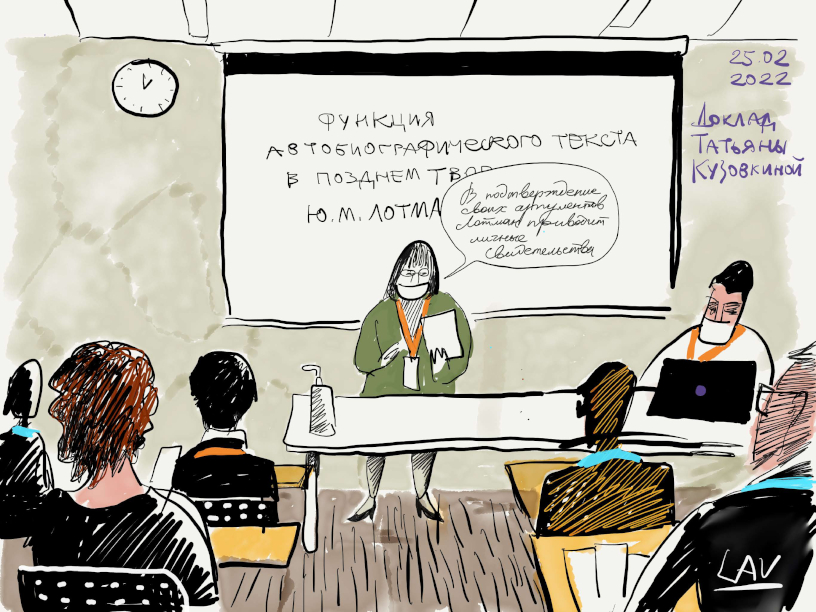 25.02
2022
Доклад
Татьяны
Кузовкиной
ФУНКЦИЯ
АВТОБИОГРАФИЧЕСКОГО ТЕКСТА
В ПОЗДНЕМ ТВОР
Ю.М. ЛОТМА
В подтверждение
своих аргументов
Лотман приводит
личные
свидетельства
LAV